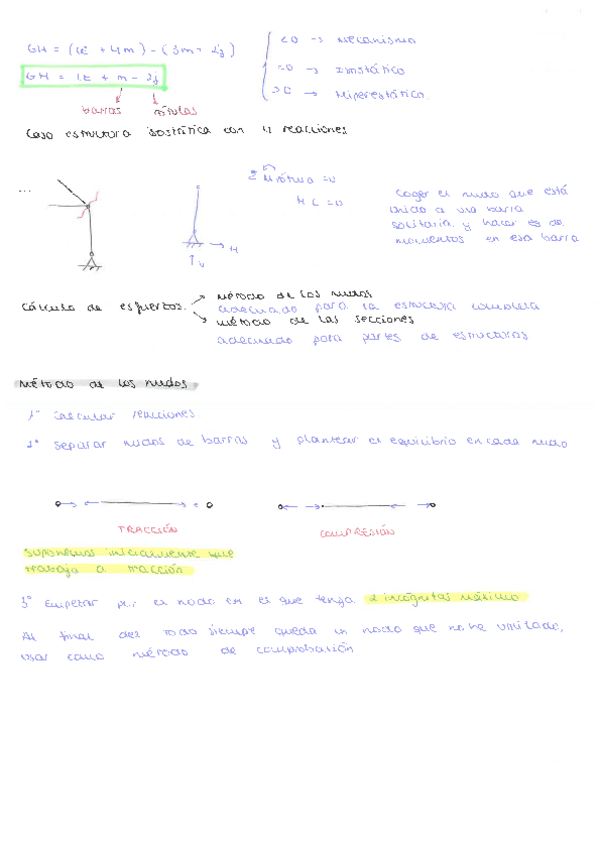 GH = (R + 4m) - (3m + 2j)
GH = R + m - 2j
barras rótulas
<0 → Mecanismo
=0 → Isostático
>0 → Hiperestático
Caso estructura isostática con 4 reacciones
...
Σ M rótula = 0
M C = 0
H
V
Coger el nudo que está
unido a una barra
solitaria y hacer ec de
momentos en esa barra
Cálculo de esfuerzos.
método de los nudos
adecuado para la estructura completa
método de las secciones
adecuado para partes de estructuras
Método de los nudos
1º Calcular reacciones
2º Separar nudos de barras y plantear el equilibrio en cada nudo
TRACCIÓN
COMPRESIÓN
suponemos inicialmente que
trabaja a tracción
3º Empezar por el nodo en el que tenga 2 incógnitas máximo
Al final del todo siempre queda un nodo que no he visitado,
usar como método de comprobación